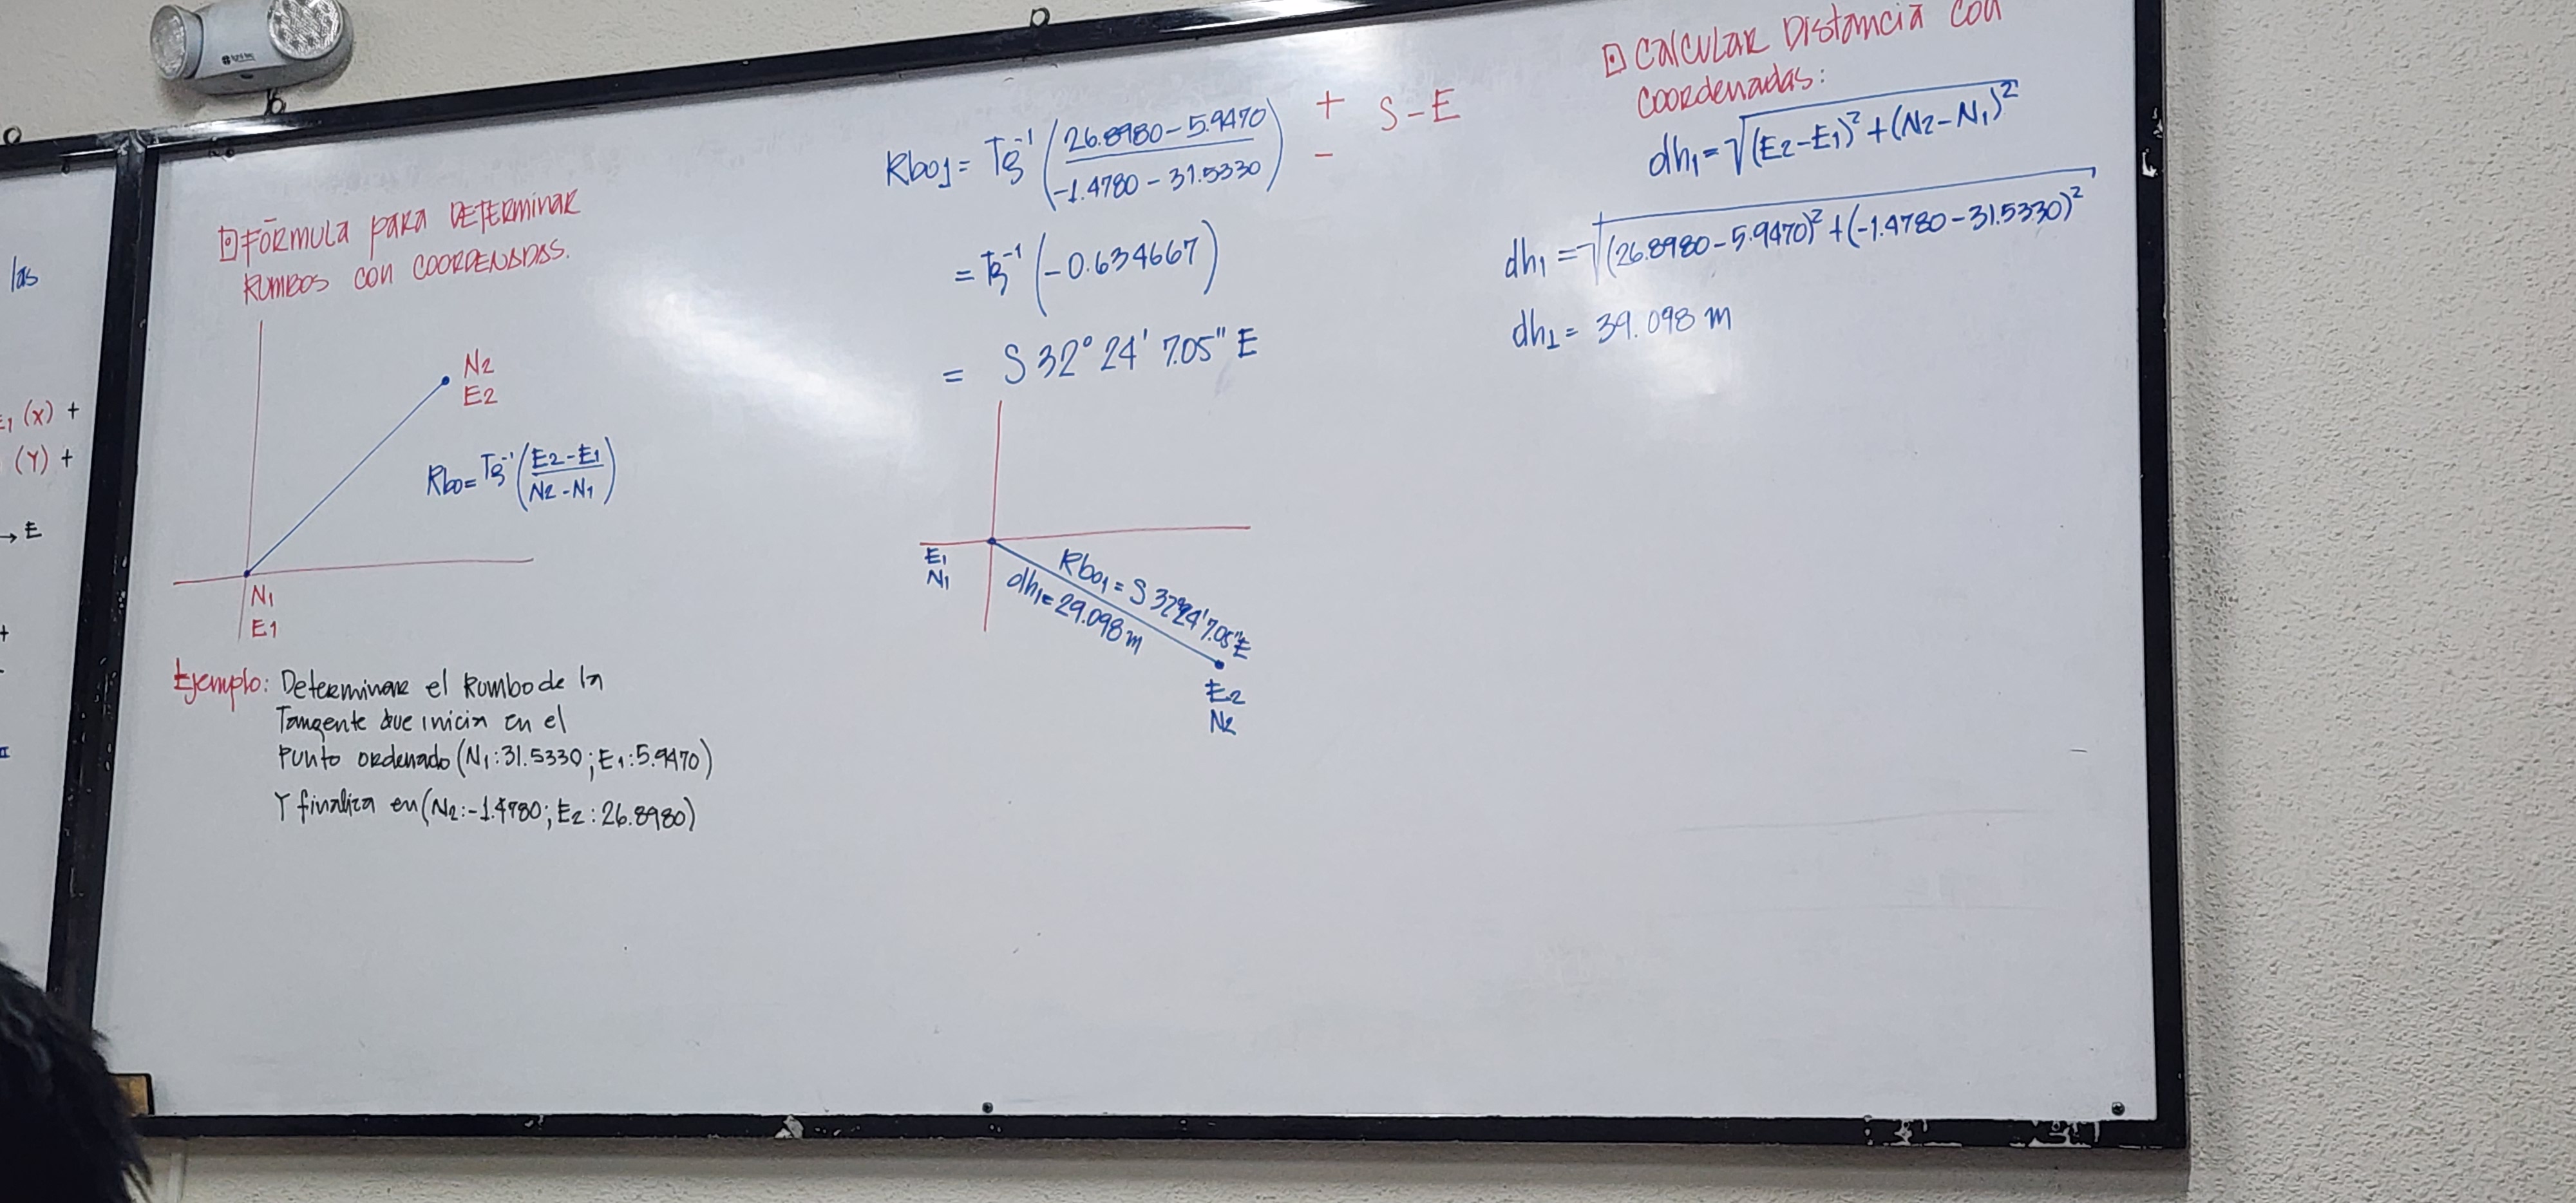 las
E1 (x) +
(Y) +
→ E
+
⊡ FÓRMULA PARA DETERMINAR
RUMBOS CON COORDENADAS.
N2
E2
Rbo = Tg⁻¹ (E2 - E1 / N2 - N1)
N1
E1
Ejemplo: Determinar el Rumbo de la
Tangente que inicia en el
Punto ordenado (N1: 31.5330; E1: 5.9470)
Y finaliza en (N2: -1.4780; E2: 26.8980)
Rbo1 = Tg⁻¹ (26.8980 - 5.9470 / -1.4780 - 31.5330) + - S-E
= Tg⁻¹ (-0.634667)
= S 32° 24' 7.05" E
E1
N1
Rbo1 = S 32°24'7.05" E
dh1 = 29.098 m
E2
N2
⊡ CALCULAR Distancia con
Coordenadas:
dh1 = √(E2 - E1)² + (N2 - N1)²
dh1 = √(26.8980 - 5.9470)² + (-1.4780 - 31.5330)²
dh1 = 39.098 m